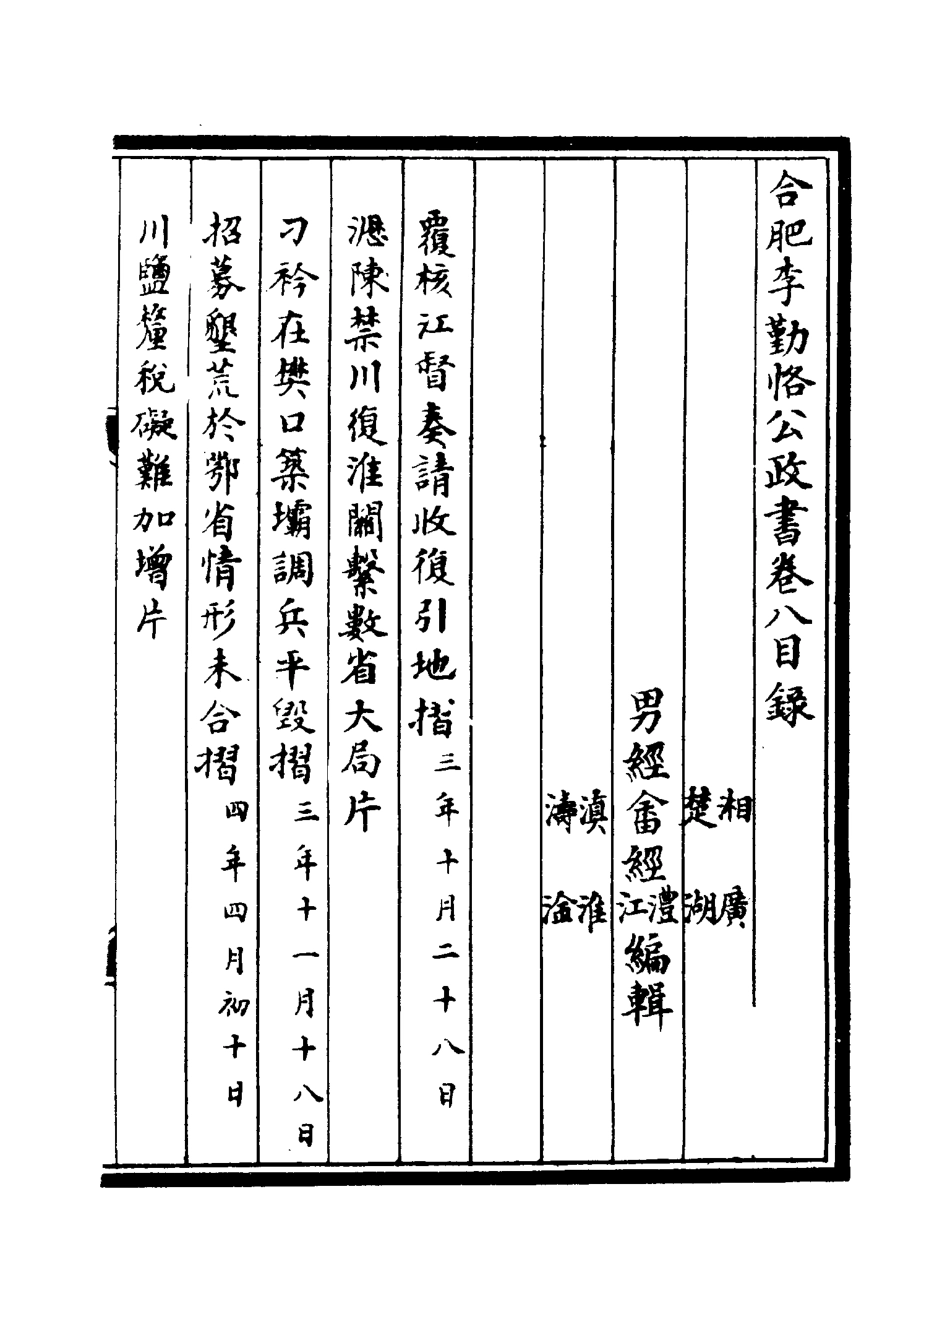 合肥李勤恪公政書卷八目錄
湘　廣
楚　湖
男經畬經澧江編輯
滇　淮
濤　淦
覆核江督奏請收復引地摺三年十月二十八日
瀝陳禁川復淮關繫數省大局片
刁衿在樊口築壩調兵平毀摺三年十一月十八日
招募墾荒於鄂省情形未合摺四年四月初十日
川鹽釐稅礙難加增片